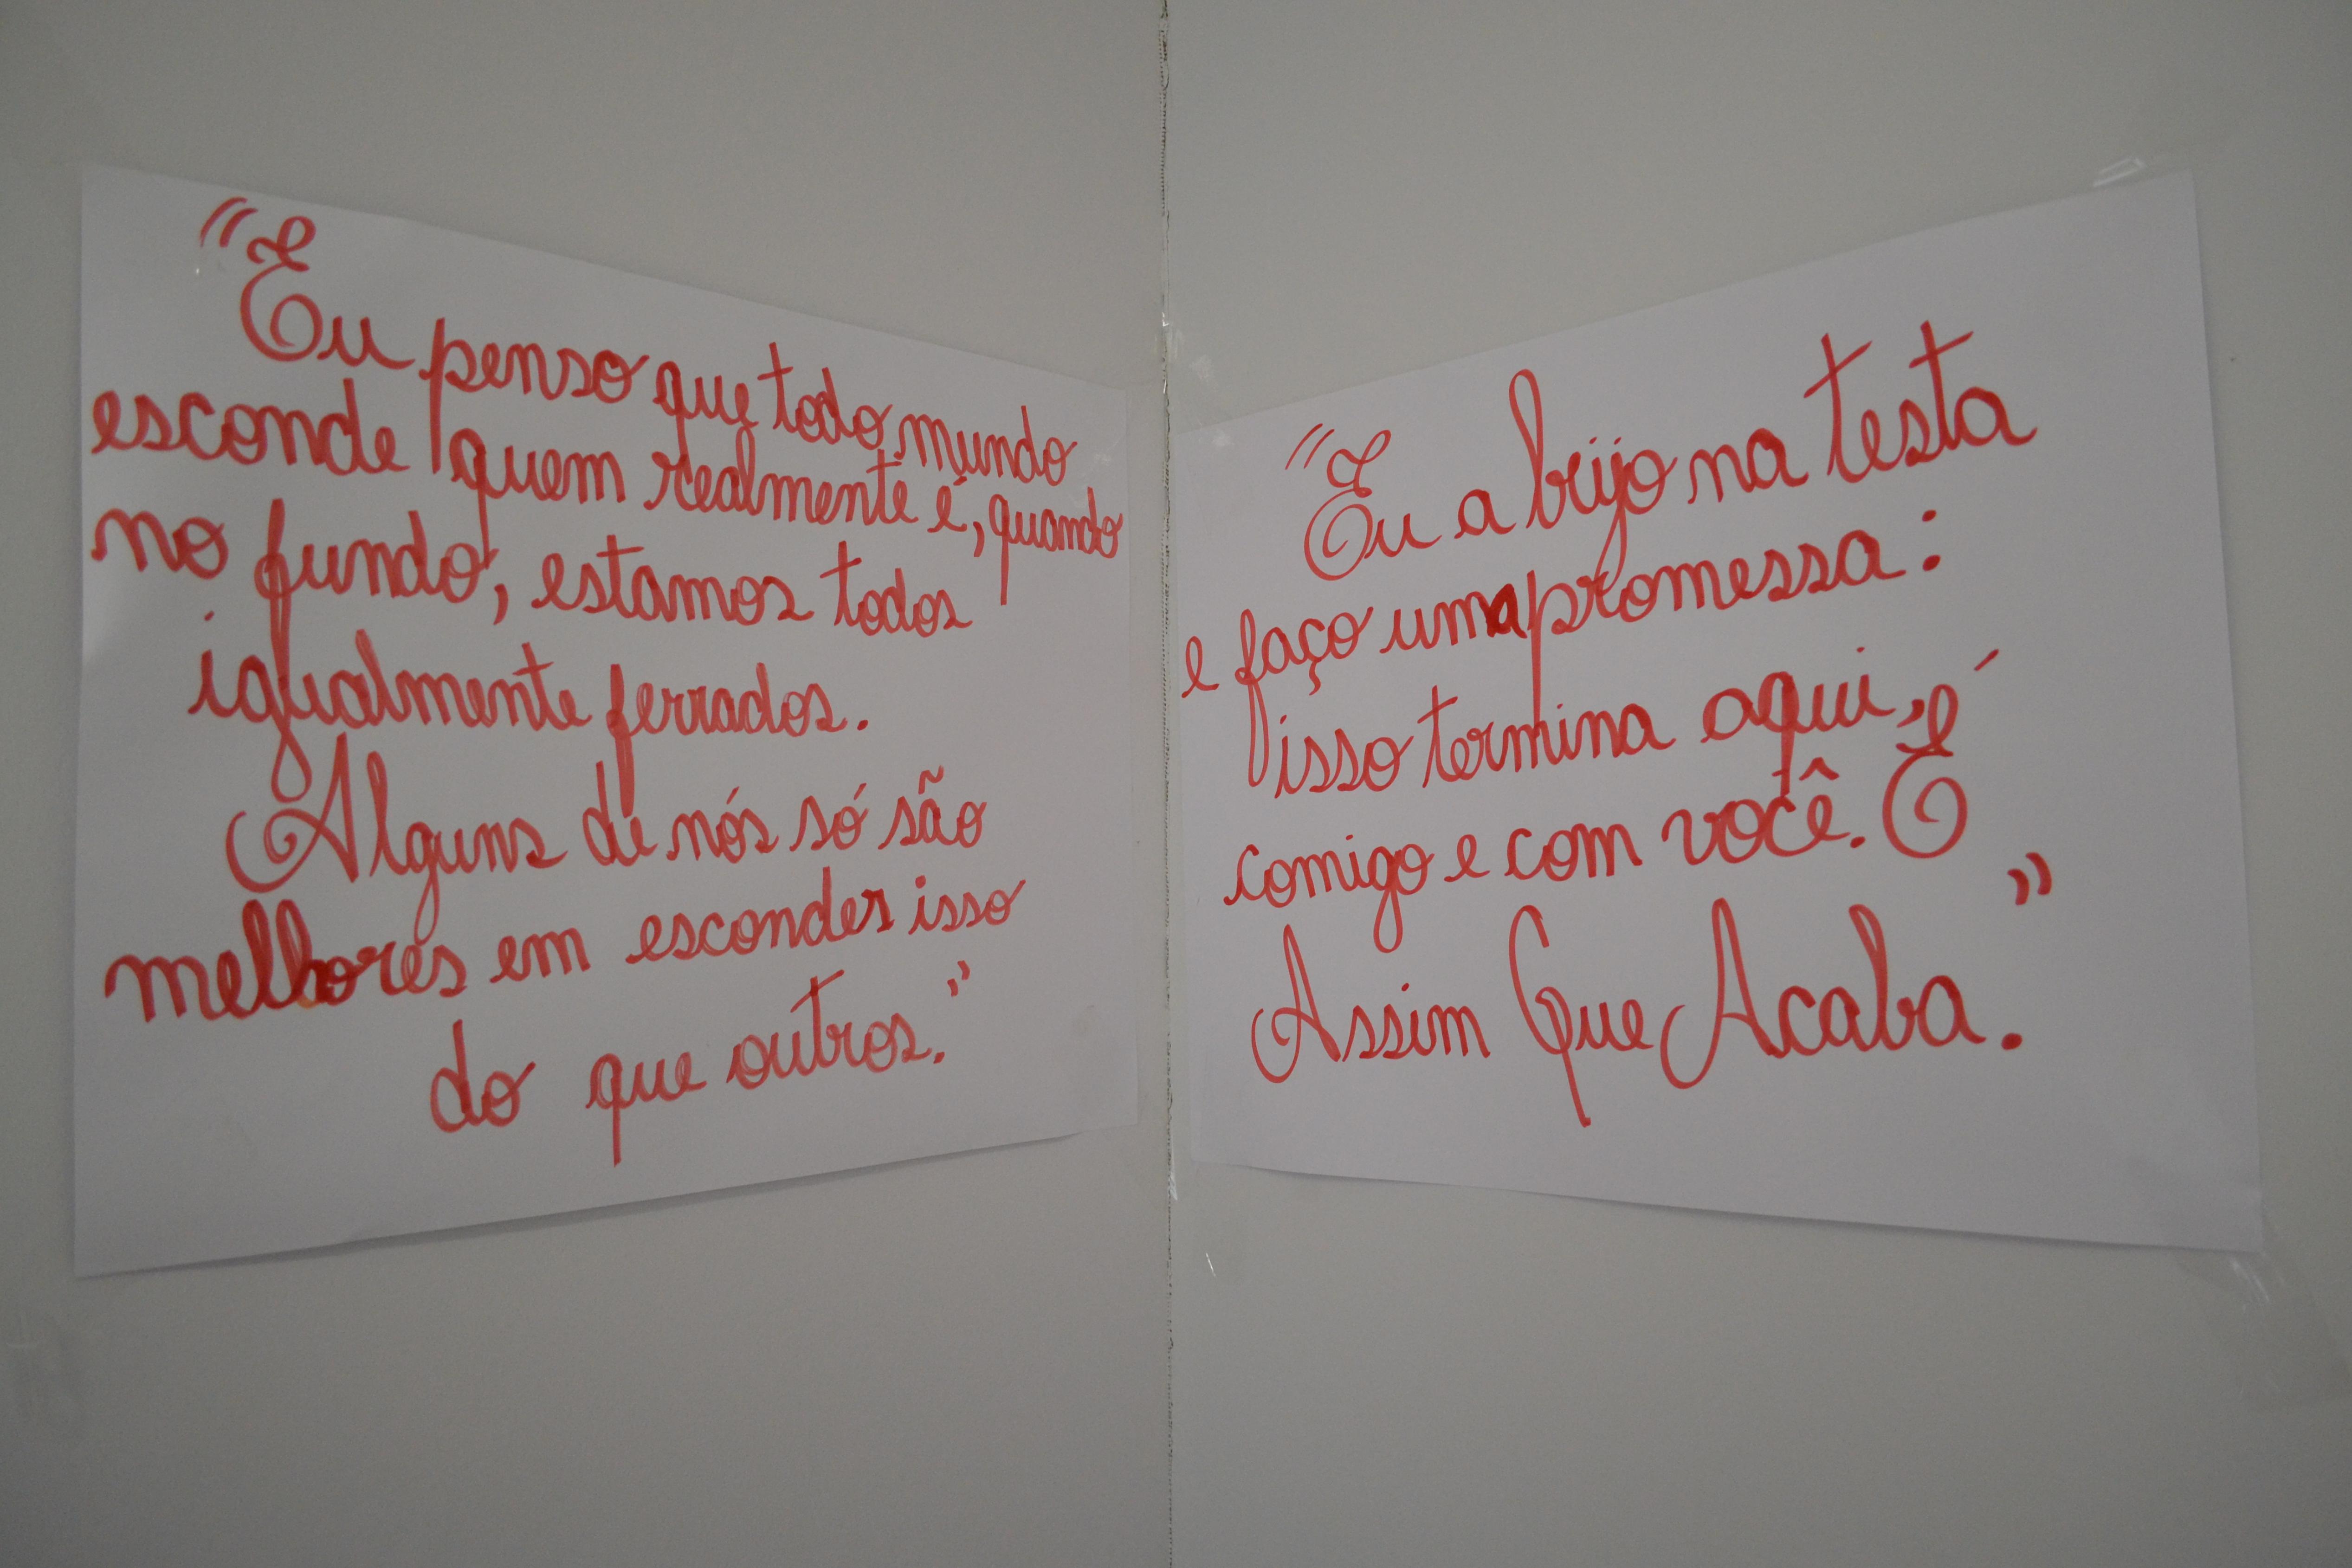 "Eu penso que todo mundo
esconde quem realmente é, quando
no fundo, estamos todos
igualmente ferrados.
Alguns de nós só são
melhores em esconder isso
do que outros."
"Eu a beijo na testa
e faço uma promessa:
isso termina aqui,
comigo e com você. É
Assim Que Acaba."